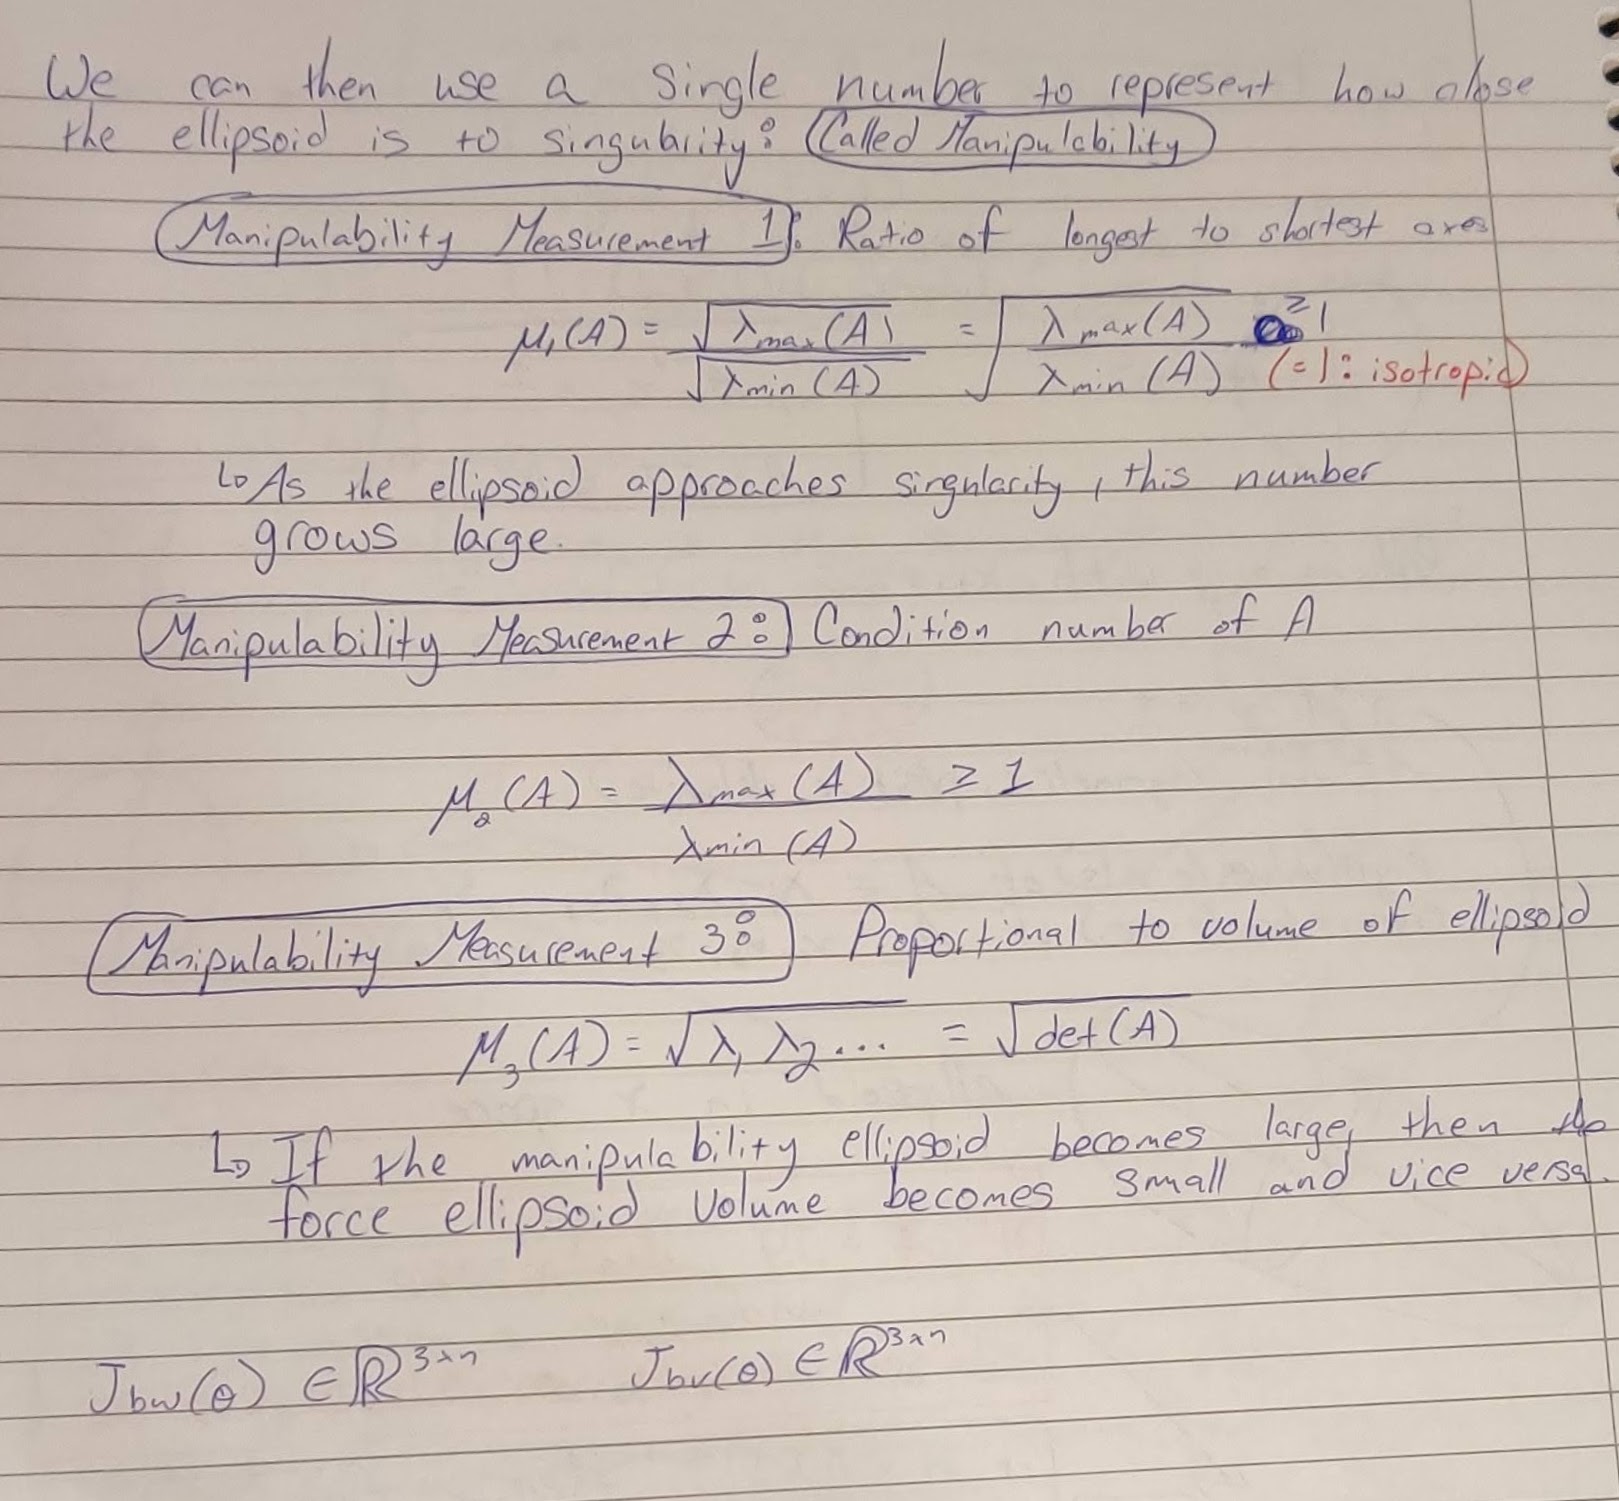 We can then use a single number to represent how close
the ellipsoid is to singularity: Called Manipulability
Manipulability Measurement 1: Ratio of longest to shortest axes
μ₁(A) = √λmax(A) / √λmin(A) = √(λmax(A) / λmin(A)) ≥1
(=1: isotropic)
↳ As the ellipsoid approaches singularity, this number
grows large.
Manipulability Measurement 2: Condition number of A
μ₂(A) = λmax(A) / λmin(A) ≥ 1
Manipulability Measurement 3: Proportional to volume of ellipsoid
μ₃(A) = √(λ₁ λ₂...) = √det(A)
↳ If the manipulability ellipsoid becomes large, then the
force ellipsoid volume becomes small and vice versa.
Jbw(θ) ∈ ℝ³ˣⁿ Jbv(θ) ∈ ℝ³ˣⁿ